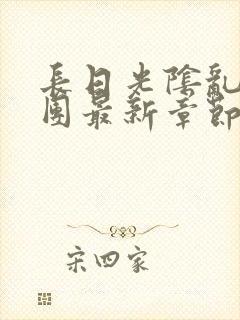 長日光陰亂
團最新章節
宋四家